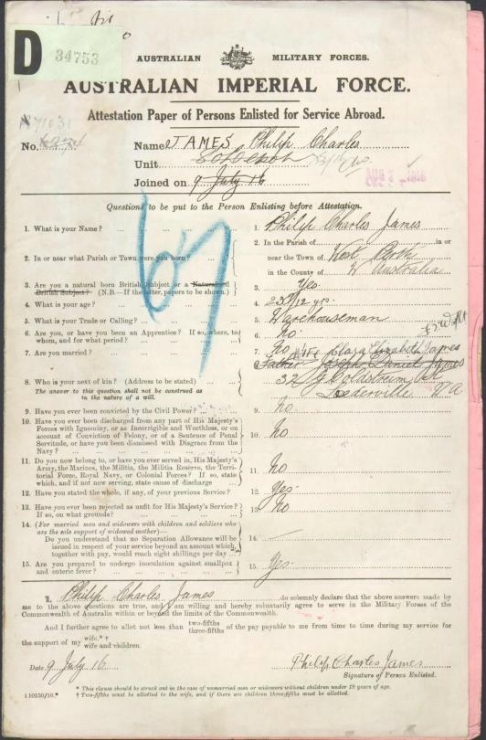 D 34753
AUSTRALIAN MILITARY FORCES.
AUSTRALIAN IMPERIAL FORCE.
Attestation Paper of Persons Enlisted for Service Abroad.
No. Name JAMES Philip Charles
Unit
Joined on 9 July 16
Questions to be put to the Person Enlisting before Attestation.
1. What is your Name? 1. Philip Charles James
2. In or near what Parish or Town were you born? 2. In the Parish of in or
near the Town of West Perth
in the County of W Australia
3. Are you a natural born British Subject or a Naturalized
British Subject? (N.B.—If the latter, papers to be shown.) 3. Yes
4. What is your age? 4.
5. What is your Trade or Calling? 5. Warehouseman
6. Are you, or have you been an Apprentice? If so, where, to
whom, and for what period? 6. No
7. Are you married? 7. No
8. Who is your next of kin? (Address to be stated) 8. Father Joseph Daniel James
Wife Clara Elizabeth James
The answer to this question shall not be construed as
in the nature of a will.
52
Leederville W A
9. Have you ever been convicted by the Civil Power? 9. No
10. Have you ever been discharged from any part of His Majesty's
Forces with Ignominy, or as Incorrigible and Worthless, or on
account of Conviction of Felony, or of a Sentence of Penal
Servitude, or have you been dismissed with Disgrace from the
Navy? 10. No
11. Do you now belong to, or have you ever served in, His Majesty's
Army, the Marines, the Militia, the Militia Reserve, the Terri-
torial Force, Royal Navy, or Colonial Forces? If so, state
which, and if not now serving, state cause of discharge 11. No
12. Have you stated the whole, if any, of your previous Service? 12. Yes
13. Have you ever been rejected as unfit for His Majesty's Service?
If so, on what grounds? 13. No
14. (For married men and widowers with children and soldiers who
are the sole support of widowed mother)—
Do you understand that no Separation Allowance will be
issued in respect of your service beyond an amount which
together with pay, would reach eight shillings per day 14.
15. Are you prepared to undergo inoculation against smallpox
and enteric fever? 15. Yes
I, Philip Charles James do solemnly declare that the above answers made by
me to the above questions are true, and I am willing and hereby voluntarily agree to serve in the Military Forces of the
Commonwealth of Australia within or beyond the limits of the Commonwealth.
And I further agree to allot not less than two-fifths three-fifths of the pay payable to me from time to time during my service for
the support of my wife.* † wife and children.
Date 9 July 16 Philip Charles James
Signature of Person Enlisted.
* This clause should be struck out in the case of unmarried men or widowers without children under 18 years of age.
† Two-fifths must be allotted to the wife, and if there are children three-fifths must be allotted.